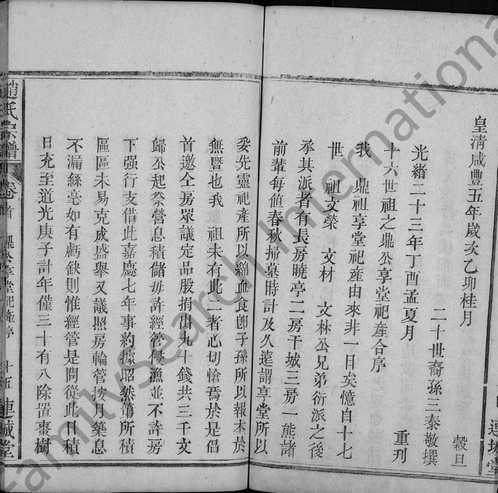 皇清咸豐五年歲次乙卯桂月
穀旦
二十世裔孫三泰敬撰
光緒二十三年丁酉孟夏月
重刋
十六世祖之鼎公享堂祀產合序
我 鼎祖享堂祀產由來非一日矣憶自十七
世 祖文榮 文材 文林公兄弟衍派之後
承其派者有長房曉亭二房干城三房一熊諸
前輩每値春秋掃墓時計及久遠謂享堂所以
妥先靈祀產所以綿血食卽子孫所以報本於
無暨也我 祖未有此二者心切愴焉於是倡
首邀仝房眾議定品股捐出九十錢共三千文
歸公起祭營息積儲毋許經管侵漁並不許房
下强行支借此嘉慶七年事約據昭然第所積
區區未易克成盛舉又議照房輪管
築息
不漏絲亳如有虧缺則惟經管是問從此日積
日充至道光庚子計年僅三十有八除置棗樹
趙氏宗譜
卷首
鼎公享堂祀產序
連城堂
連城堂
FamilySearch International